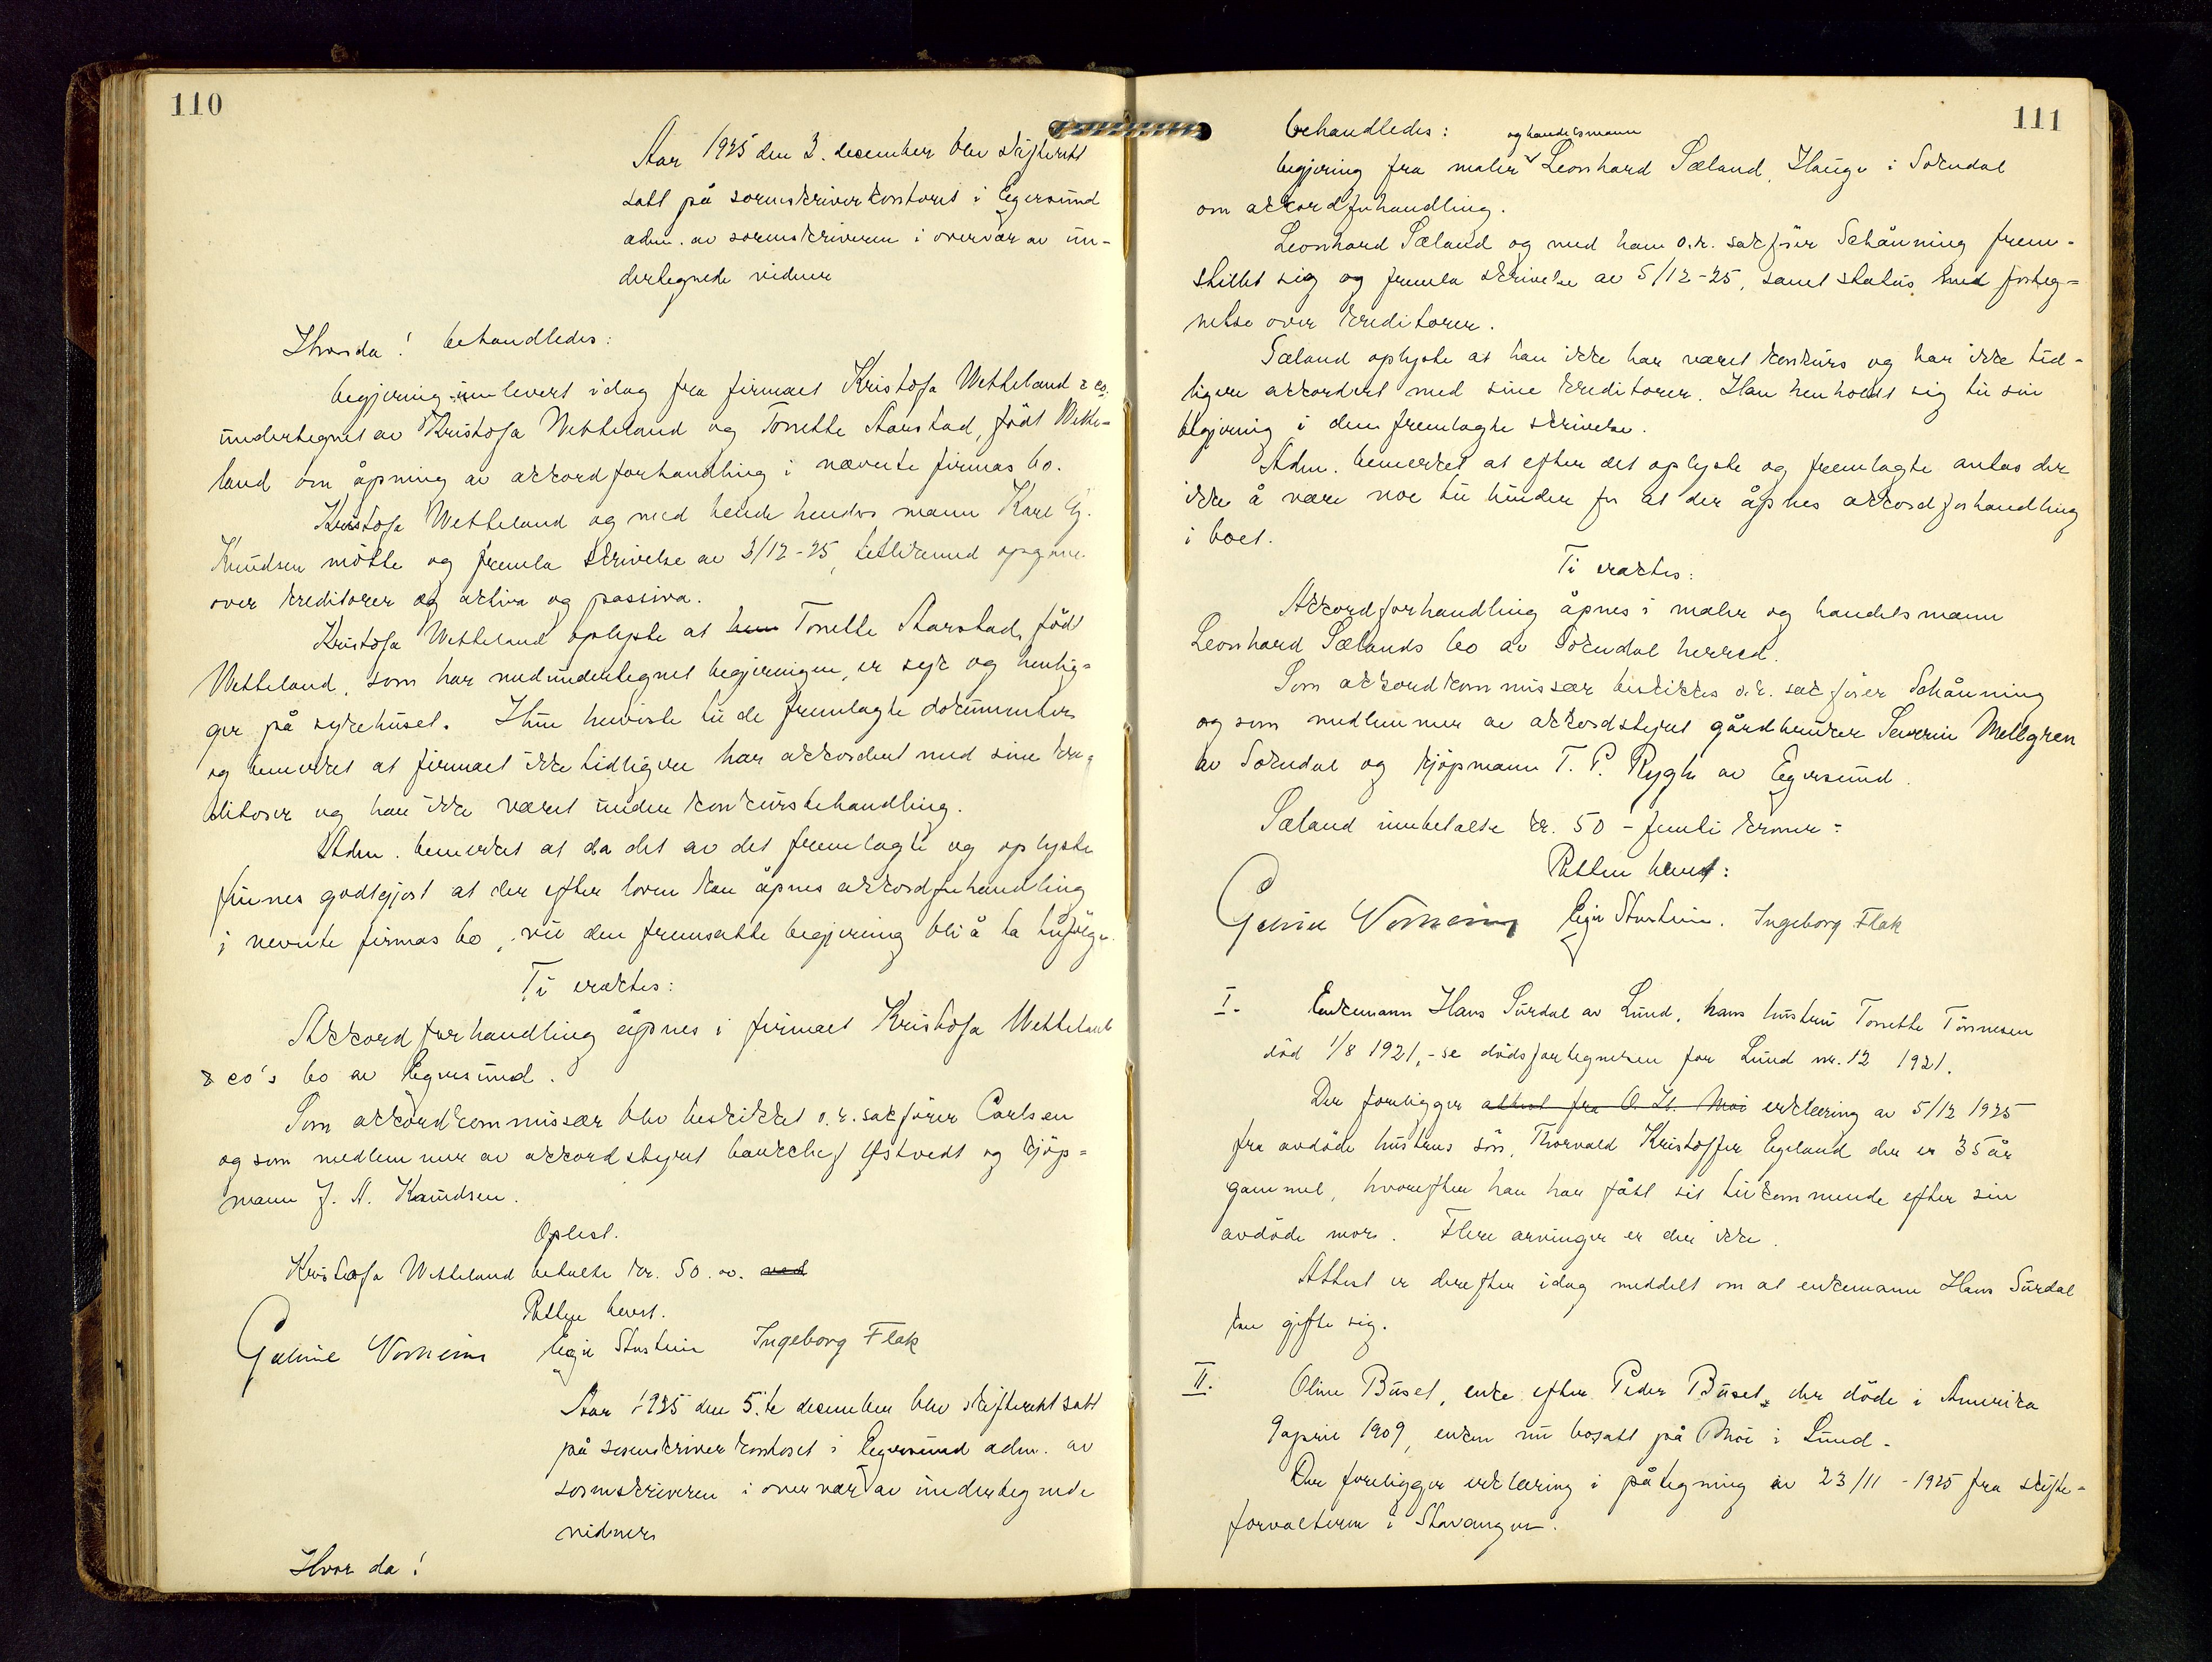 110
Aar 1925 den 3. december blev skifterett
satt på sorenskriverkontoret i Egersund
adm. av sorenskriveren i overvær av un-
dertegnede vidner
Hvorda! behandledes:
begjering innlevert idag fra firmaet Kristofa Wetteland & co.
undertegnet av Kristofa Wetteland og Tonette Aarstad, född Wette-
land om åpning av akkordforhandling i nævnte firmas bo.
Kristofa Wetteland og med hende hendes mann Karl Eg.
Knudsen mötte og fremla skrivelse av 3/12-25, tillikemed opgave
over kreditorer og aktiva og passiva.
Kristofa Wetteland oplyste at hun Tonette Aarstad, född
Wetteland, som har medundertegnet begjeringen, er syk og henlig-
ger på sykehuset. Hun henviste til de fremlagte dokumenter
og bemerket at firmaet ikke tidligere har akkordert med sine kre-
ditorer og har ikke været under konkursbehandling.
Adm. bemerket at da det av det fremlagte og oplyste
finnes godtgjort at der efter loven kan åpnes akkordforhandling
i nevnte firmas bo, vil den fremsatte begjering bli å ta tilfölge.
Ti eraktes:
Akkordforhandling åpnes i firmaet Kristofa Wetteland
& co's bo av Egersund.
Som akkordkommissær blev beskikket o.r. sakförer Carlsen
og som medlemmer av akkordstyret bankchef Østvedt og kjöp-
mann J. A. Knudsen.
Oplest.
Kristofa Wetteland betalte kr. 50.00. ved
Retten hevet.
Gabriel Vorheim Egil Storstein Ingeborg Flak
Aar 1925 den 5.te december blev skifterett satt
på sorenskriverkontoret i Egersund adm. av
sorenskriveren i overvær av undertegnede
vidner
Hvor da!
111
behandledes:
og handelsmann
begjering fra maler Leonhard Sæland, Hauge i Sokndal
om akkordforhandling.
Leonhard Sæland og med ham o.r. sakförer Schånning frem-
stillet sig og fremla skrivelse av 5/12-25, samt status med forteg-
nelse over kreditorer.
Sæland oplyste at han ikke har været konkurs og har ikke tid-
ligere akkordert med sine kreditorer. Han henholdt sig til sin
begjering i den fremlagte skrivelse.
Adm. bemerket at efter det oplyste og fremlagte antas der
ikke å være noe til hinder for at der åpnes akkordforhandling
i boet.
Ti eraktes:
Akkordforhandling åpnes i maler og handelsmann
Leonhard Sælands bo av Sokndal herred.
Som akkordkommissær beskikkes o.r. sakförer Schånning
og som medlemmer av akkordstyret gårdbruker Severin Mellgren
av Sokndal og kjöpmann T. P. Rygh av Egersund.
Sæland innbetalte kr. 50 - femti kroner -
Retten hevet:
Gabriel Vorheim Egil Storstein. Ingeborg Flak
I. Enkemann Hans Surdal av Lund, hans hustru Tonette Tönnesen
död 1/8 1921, - se dödsfortegnelsen for Lund nr. 12 1921.
Der foreligger attest fra O. Li. Moi erklæring av 5/12 1925
fra avdöde hustrus sön, Thorvald Kristoffer Egeland der er 35 år
gammel, hvorefter han har fått sit tilkommende efter sin
avdöde mor. Flere arvinger er der ikke.
Attest er derefter idag meddelt om at enkemann Hans Surdal
kan gifte sig.
II. Oline Buset, enke efter Peder Buset, der döde i Amerika
9 april 1909, enken nu bosatt på Moi i Lund.
Der foreligger erklæring i påtegning av 23/11 - 1925 fra skifte-
forvalteren i Stavanger.